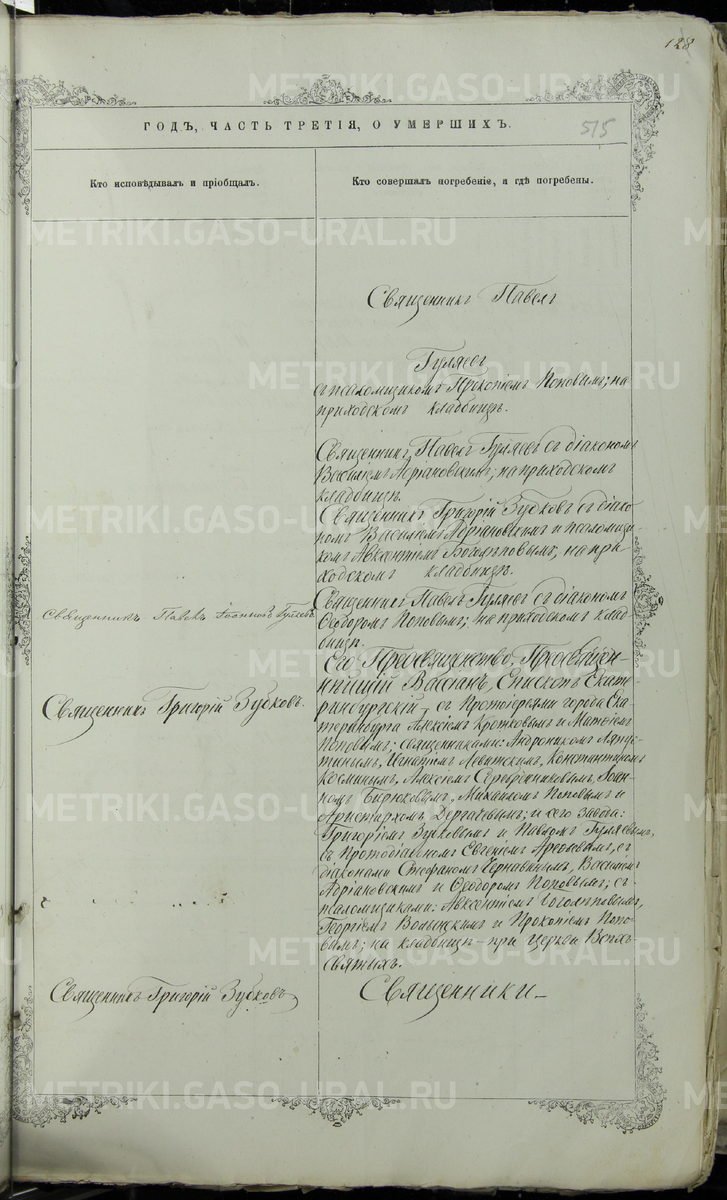 128
ГОДЪ, ЧАСТЬ ТРЕТІЯ, О УМЕРШИХЪ.
515
Кто исповѣдывалъ и пріобщалъ.
Кто совершалъ погребеніе, и гдѣ погребены.
Священникъ Павелъ
Гуляевъ
съ псаломщикомъ Прокопіемъ Поповымъ; на
приходскомъ кладбищѣ.
Священникъ Павелъ Гуляевъ съ діакономъ
Василіемъ Адріановскимъ; на приходскомъ
кладбищѣ.
Священникъ Григорій Зубковъ съ діако-
номъ Василіемъ Адріановскимъ и псаломщи-
комъ Боголѣповымъ; на при-
ходскомъ кладбищѣ.
Священникъ Павелъ Іоанновъ Гуляевъ
Священникъ Павелъ Гуляевъ съ діакономъ
Ѳеодоромъ Поповымъ; на приходскомъ клад-
бищѣ.
Священникъ Григорій Зубковъ.
Его Преосвященство, Преосвящен-
нѣйшій Вассіанъ, Епископъ Екате-
ринбургскій, съ Протоіереями города Ека-
теринбурга Алексіемъ Кротковымъ и
Поповымъ; священниками: Андроникомъ Ляпус-
тинымъ, Игнатіемъ Левитскимъ, Константиномъ
Космынымъ, Алексіемъ Іоан-
номъ Бирюковымъ, Михаиломъ Поповымъ и
Аристархомъ Дергачевымъ; и сего завода:
Григоріемъ Зубковымъ и Павломъ Гуляевымъ,
съ Протодіакономъ Евгеніемъ съ
діаконами Стефаномъ Чернавинымъ, Василіемъ
Адріановскимъ и Ѳеодоромъ Поповымъ; съ
псаломщиками: Боголѣповымъ,
Георгіемъ Волынскимъ и Прокопіемъ Попо-
вымъ; на кладбищѣ - при церкви Всѣхъ
Святыхъ.
Священникъ Григорій Зубковъ
Священники
METRIKI.GASO-URAL.RU